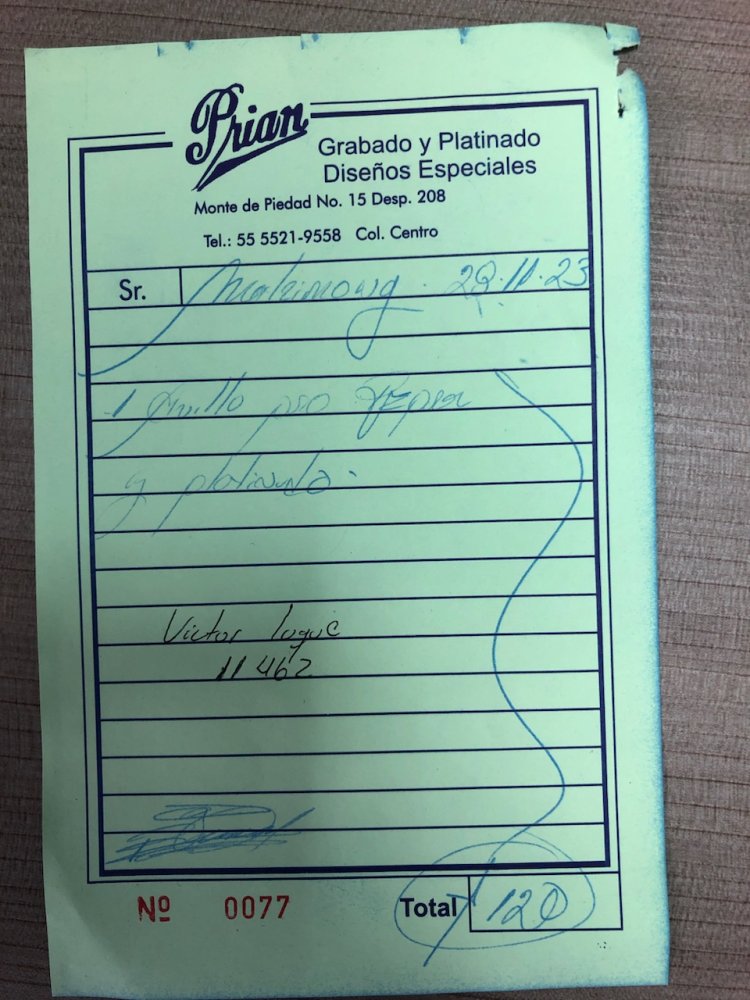 Prian
Grabado y Platinado
Diseños Especiales
Monte de Piedad No. 15 Desp. 208
Tel.: 55 5521-9558 Col. Centro
Sr. 29.11.23
1 Anillo pro
y platinado.
Victor Luque
11462
Nº 0077 Total 120